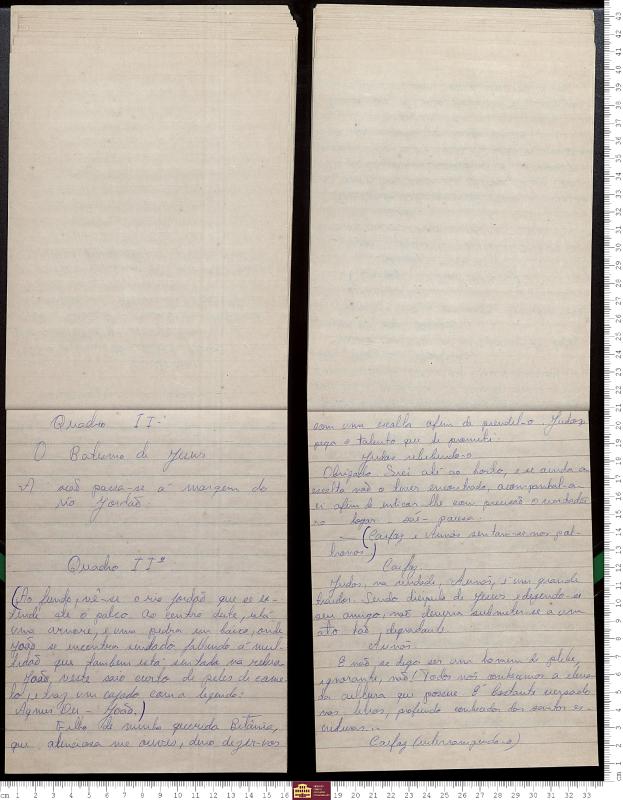 Quadro II-
O Batismo de Jesus
A ação passa-se á margem do
rio Jordão.
Quadro IIº
(Ao fundo, vê-se o rio Jordão que se es-
tende até o palco. Ao centro deste, está
uma arvore, e uma pedra em baixo, onde
João se encontra sentado falando á mul-
tidão, que tambem está sentada na relva.
João, veste saio curto de peles de came-
lo, e traz um cajado com a legenda:
Agnus Dei - João.)
Filhos de minha querida Betânia,
que atenciosa me ouvis, devo dizer-vos
com uma escolta afim de prendel-o. Judas,
pega o talento que te prometi.
Judas recebendo-o
Obrigado. Irei até ao horto, e se ainda a
escolta não o tiver encontrado, acompanhal-a-
ei afim de indicar-lhe com precisão o verdadei-
ro lugar. sáe - pausa
(Caifaz e Anaz sentam-se nos pol-
tronas.)
Caifaz
Judas, na verdade, é um grande
traidor. Sendo discipulo de Jesus e dizendo-se
seu amigo, não deveria submeter-se á um
ato tão degradante
E não se diga ser um homem da plebe,
ignorante, não! Todos nós conhecemos a eleva-
da cultura que possue. É bastante versado
nas letras, profundo conhecedor dos santos es-
crituras...
Caifaz (interrompendo-o)
cm 1 2 3 4 5 6 7 8 9 10 11 12 13 14 15 16
19 20 21 22 23 24 25 26 27 28 29 30 31 32 33